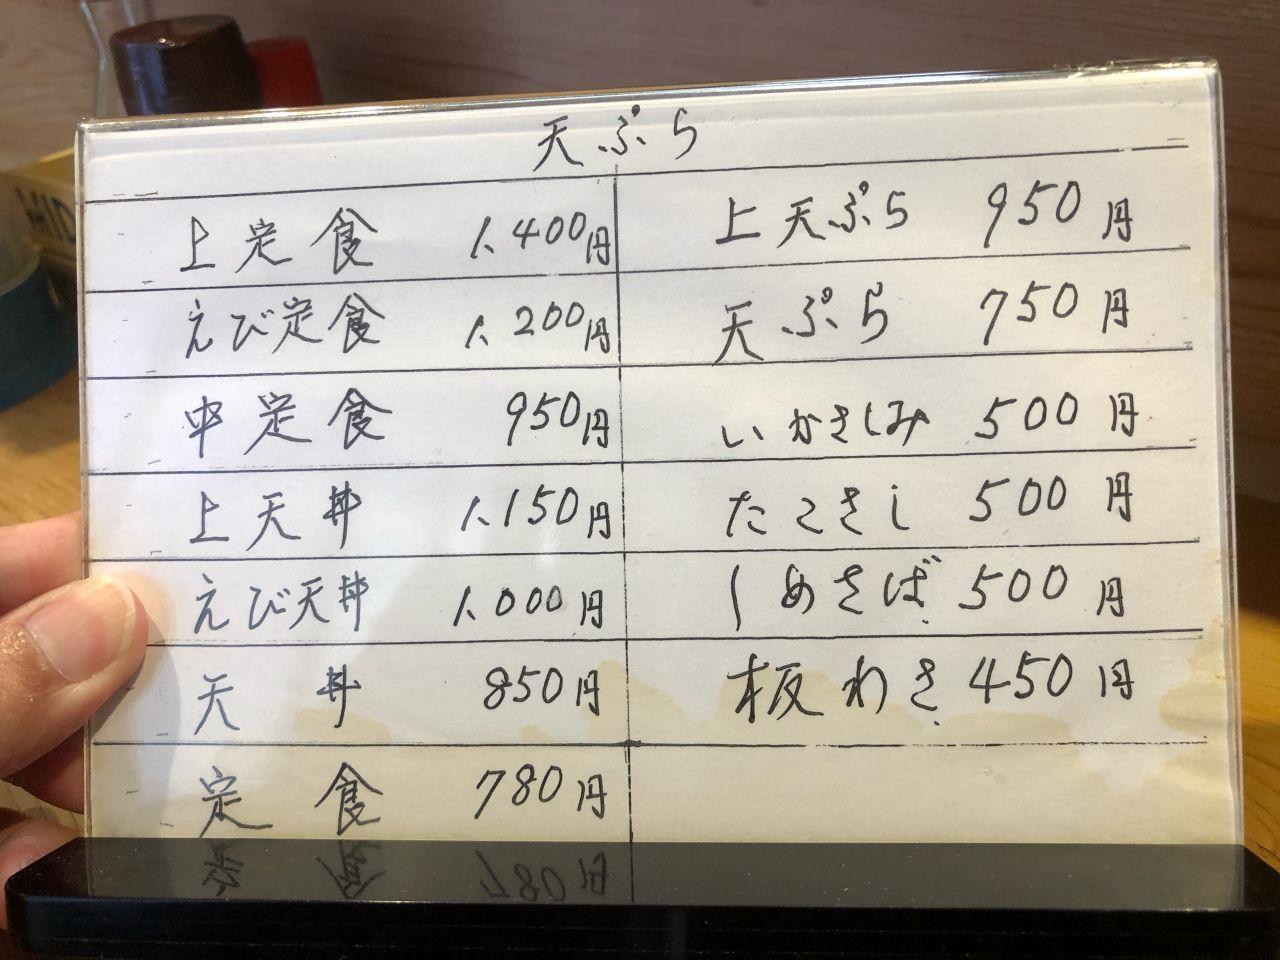 天ぷら
上定食 1,400円
えび定食 1,200円
中定食 950円
上天丼 1,150円
えび天丼 1,000円
天丼 850円
定食 780円
上天ぷら 950円
天ぷら 750円
いかさしみ 500円
たこさし 500円
しめさば 500円
板わさ 450円
MID